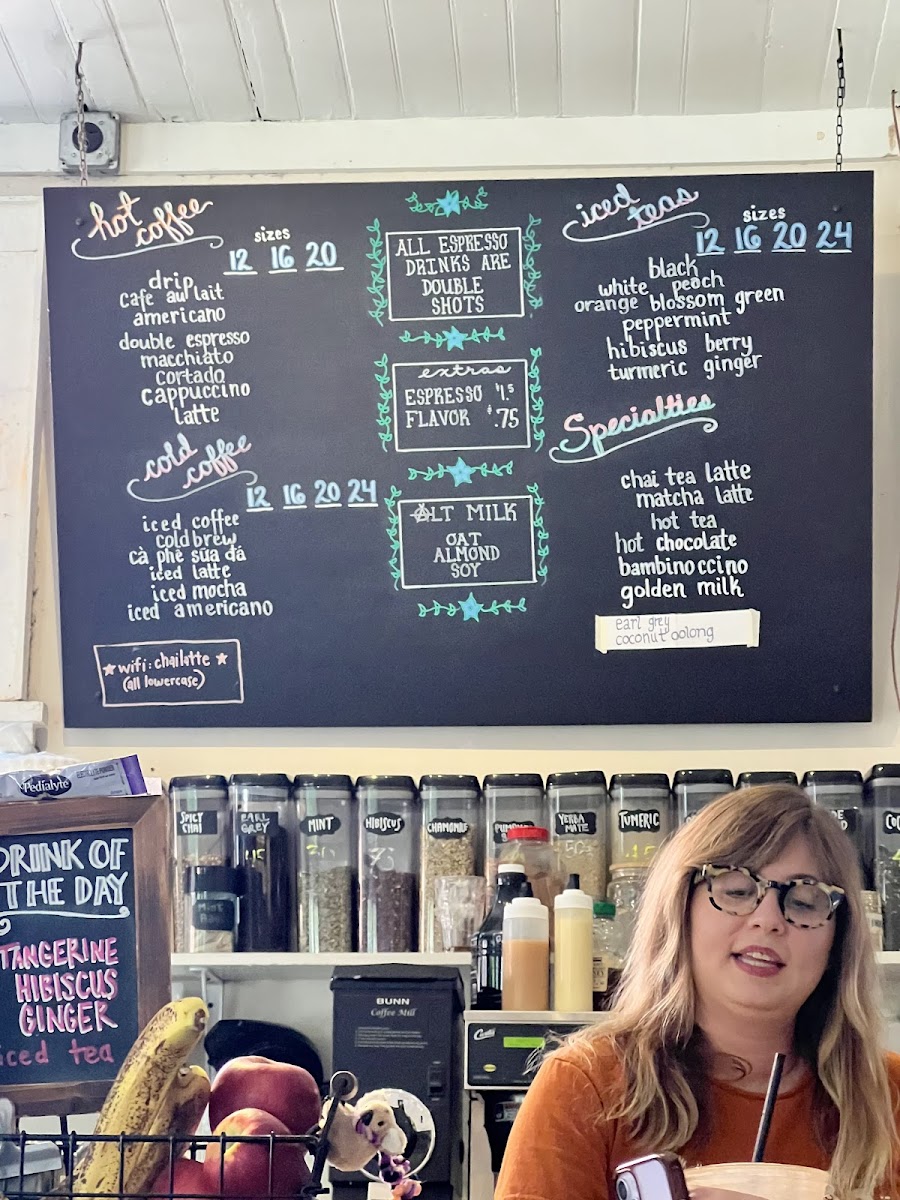 hot
coffee
sizes
12 16 20
drip
cafe au lait
americano
double espresso
macchiato
cortado
cappuccino
latte
cold
coffee
12 16 20 24
iced coffee
cold brew
cà phê sữa đá
iced latte
iced mocha
iced americano
★ wifi: chailatte ★
(all lowercase)
ALL ESPRESSO
DRINKS ARE
DOUBLE
SHOTS
extras
ESPRESSO $1.5
FLAVOR $.75
ALT MILK
OAT
ALMOND
SOY
iced
teas
sizes
12 16 20 24
black
white peach
orange blossom green
peppermint
hibiscus berry
turmeric ginger
Specialties
chai tea latte
matcha latte
hot tea
hot chocolate
bambinoccino
golden milk
earl grey
coconut oolong
Pedialyte
DRINK OF
THE DAY
TANGERINE
HIBISCUS
GINGER
iced tea
SPICY
CHAI
EARL
GREY
MINT
HIBISCUS
CHAMOMILE
YERBA
MATE
TUMERIC
BUNN
Coffee Mill
Curtis